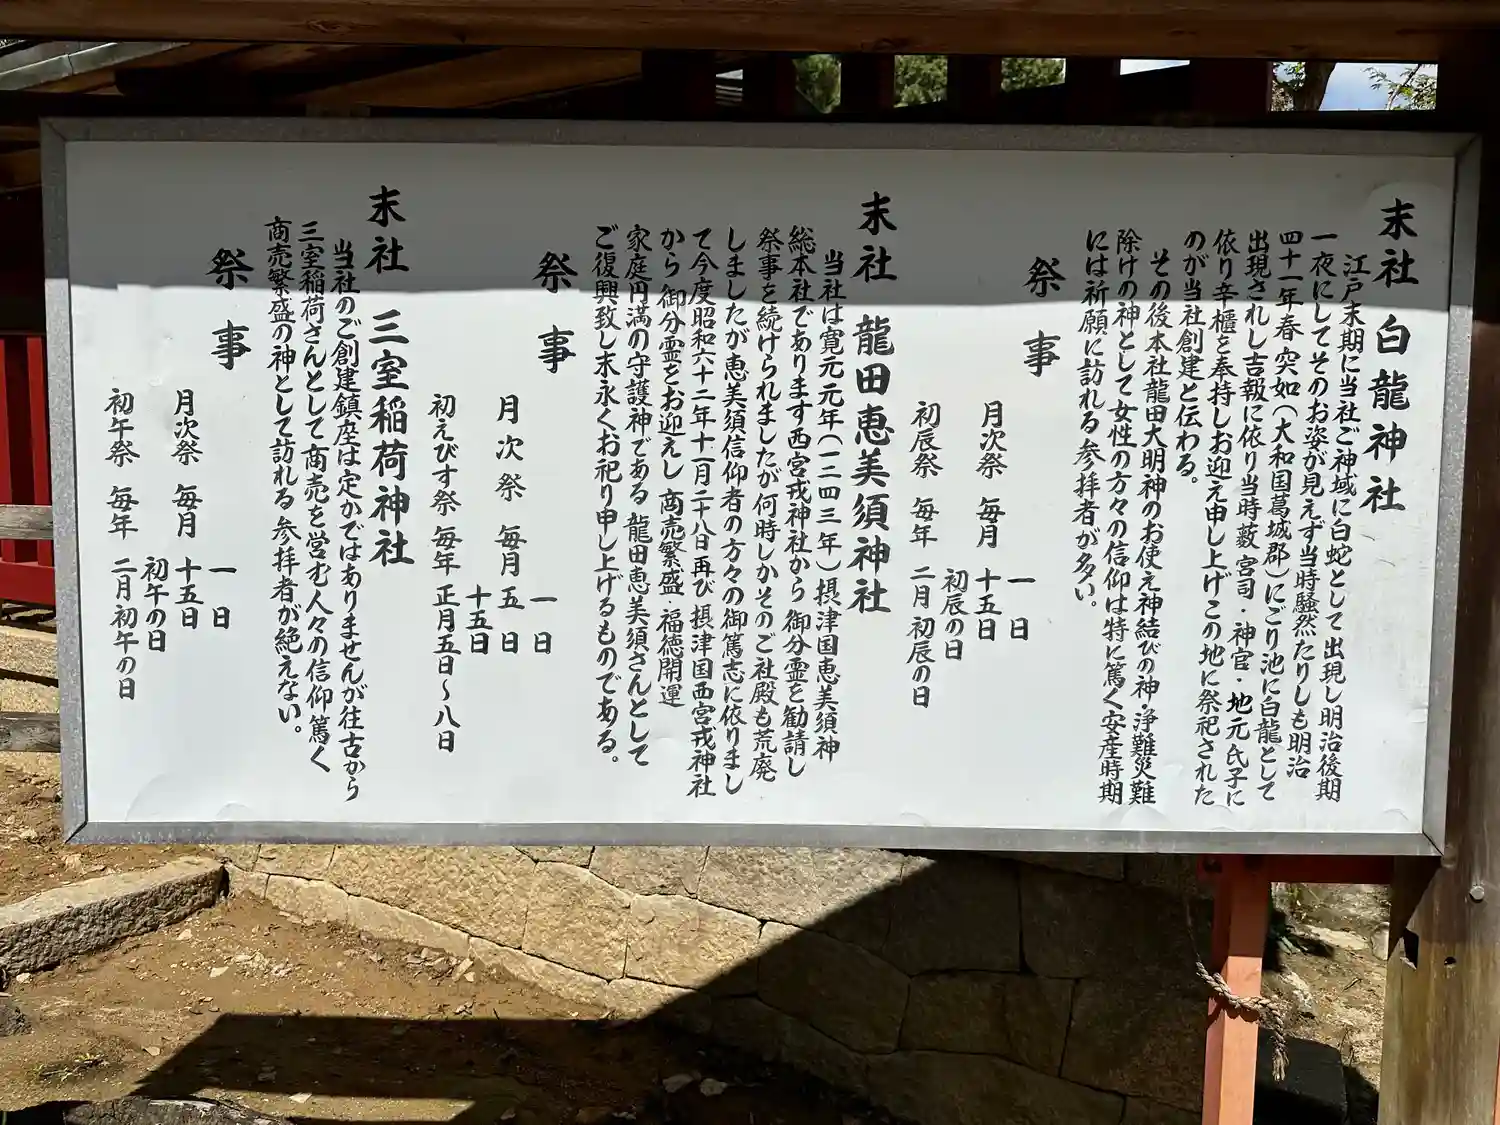 末社 白龍神社
江戸末期に当社ご神域に白蛇として出現し明治後期
一夜にしてそのお姿が見えず当時騒然たりしも明治
四十一年春 突如(大和国葛城郡)にごり池に白龍として
出現されし吉報に依り当時藪宮司・神官・地元氏子に
依り辛櫃を奉持しお迎え申し上げこの地に祭祀された
のが当社創建と伝わる。
その後本社龍田大明神のお使え神結びの神・浄難災難
除けの神として女性の方々の信仰は特に篤く安産時期
には祈願に訪れる参拝者が多い。
祭事
月次祭 毎月 一日
十五日
初辰祭 毎年 初辰の日
二月初辰の日
末社 龍田恵美須神社
当社は寛元元年(一二四三年)摂津国恵美須神
総本社であります西宮戎神社から御分霊を勧請し
祭事を続けられましたが何時しかそのご社殿も荒廃
しましたが恵美須信仰者の方々の御篤志に依りまし
て今度昭和六十二年十一月二十八日再び摂津国西宮戎神社
から御分霊をお迎えし商売繁盛・福徳開運
家庭円満の守護神である龍田恵美須さんとして
ご復興致し末永くお祀り申し上げるものである。
祭事
月次祭 毎月 一日
五日
十五日
初えびす祭 毎年 正月五日~八日
末社 三室稲荷神社
当社のご創建鎮座は定かではありませんが往古から
三室稲荷さんとして商売を営む人々の信仰篤く
商売繁盛の神として訪れる参拝者が絶えない。
祭事
月次祭 毎月 一日
十五日
初午祭 毎年 初午の日
二月初午の日